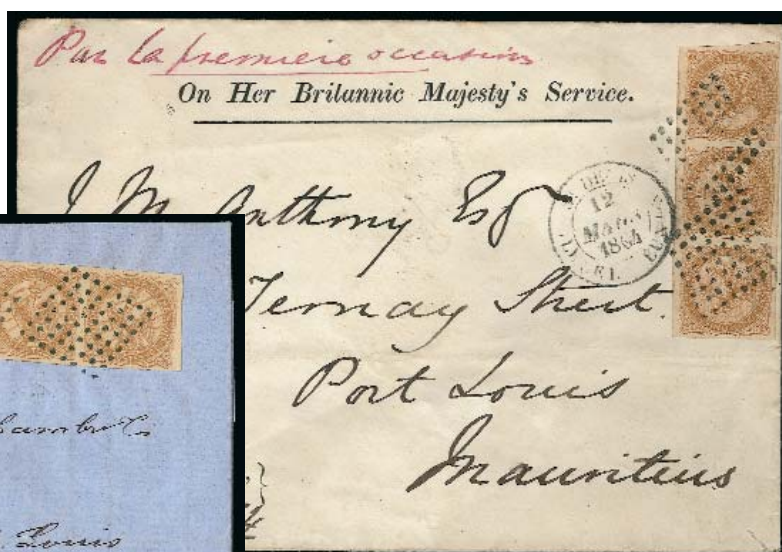 Par la premiere occasion
On Her Britannic Majesty's Service.
J. M. Anthony Esqr
Ternay Street.
Port Louis
Mauritius
12
MARS
1864
Louis